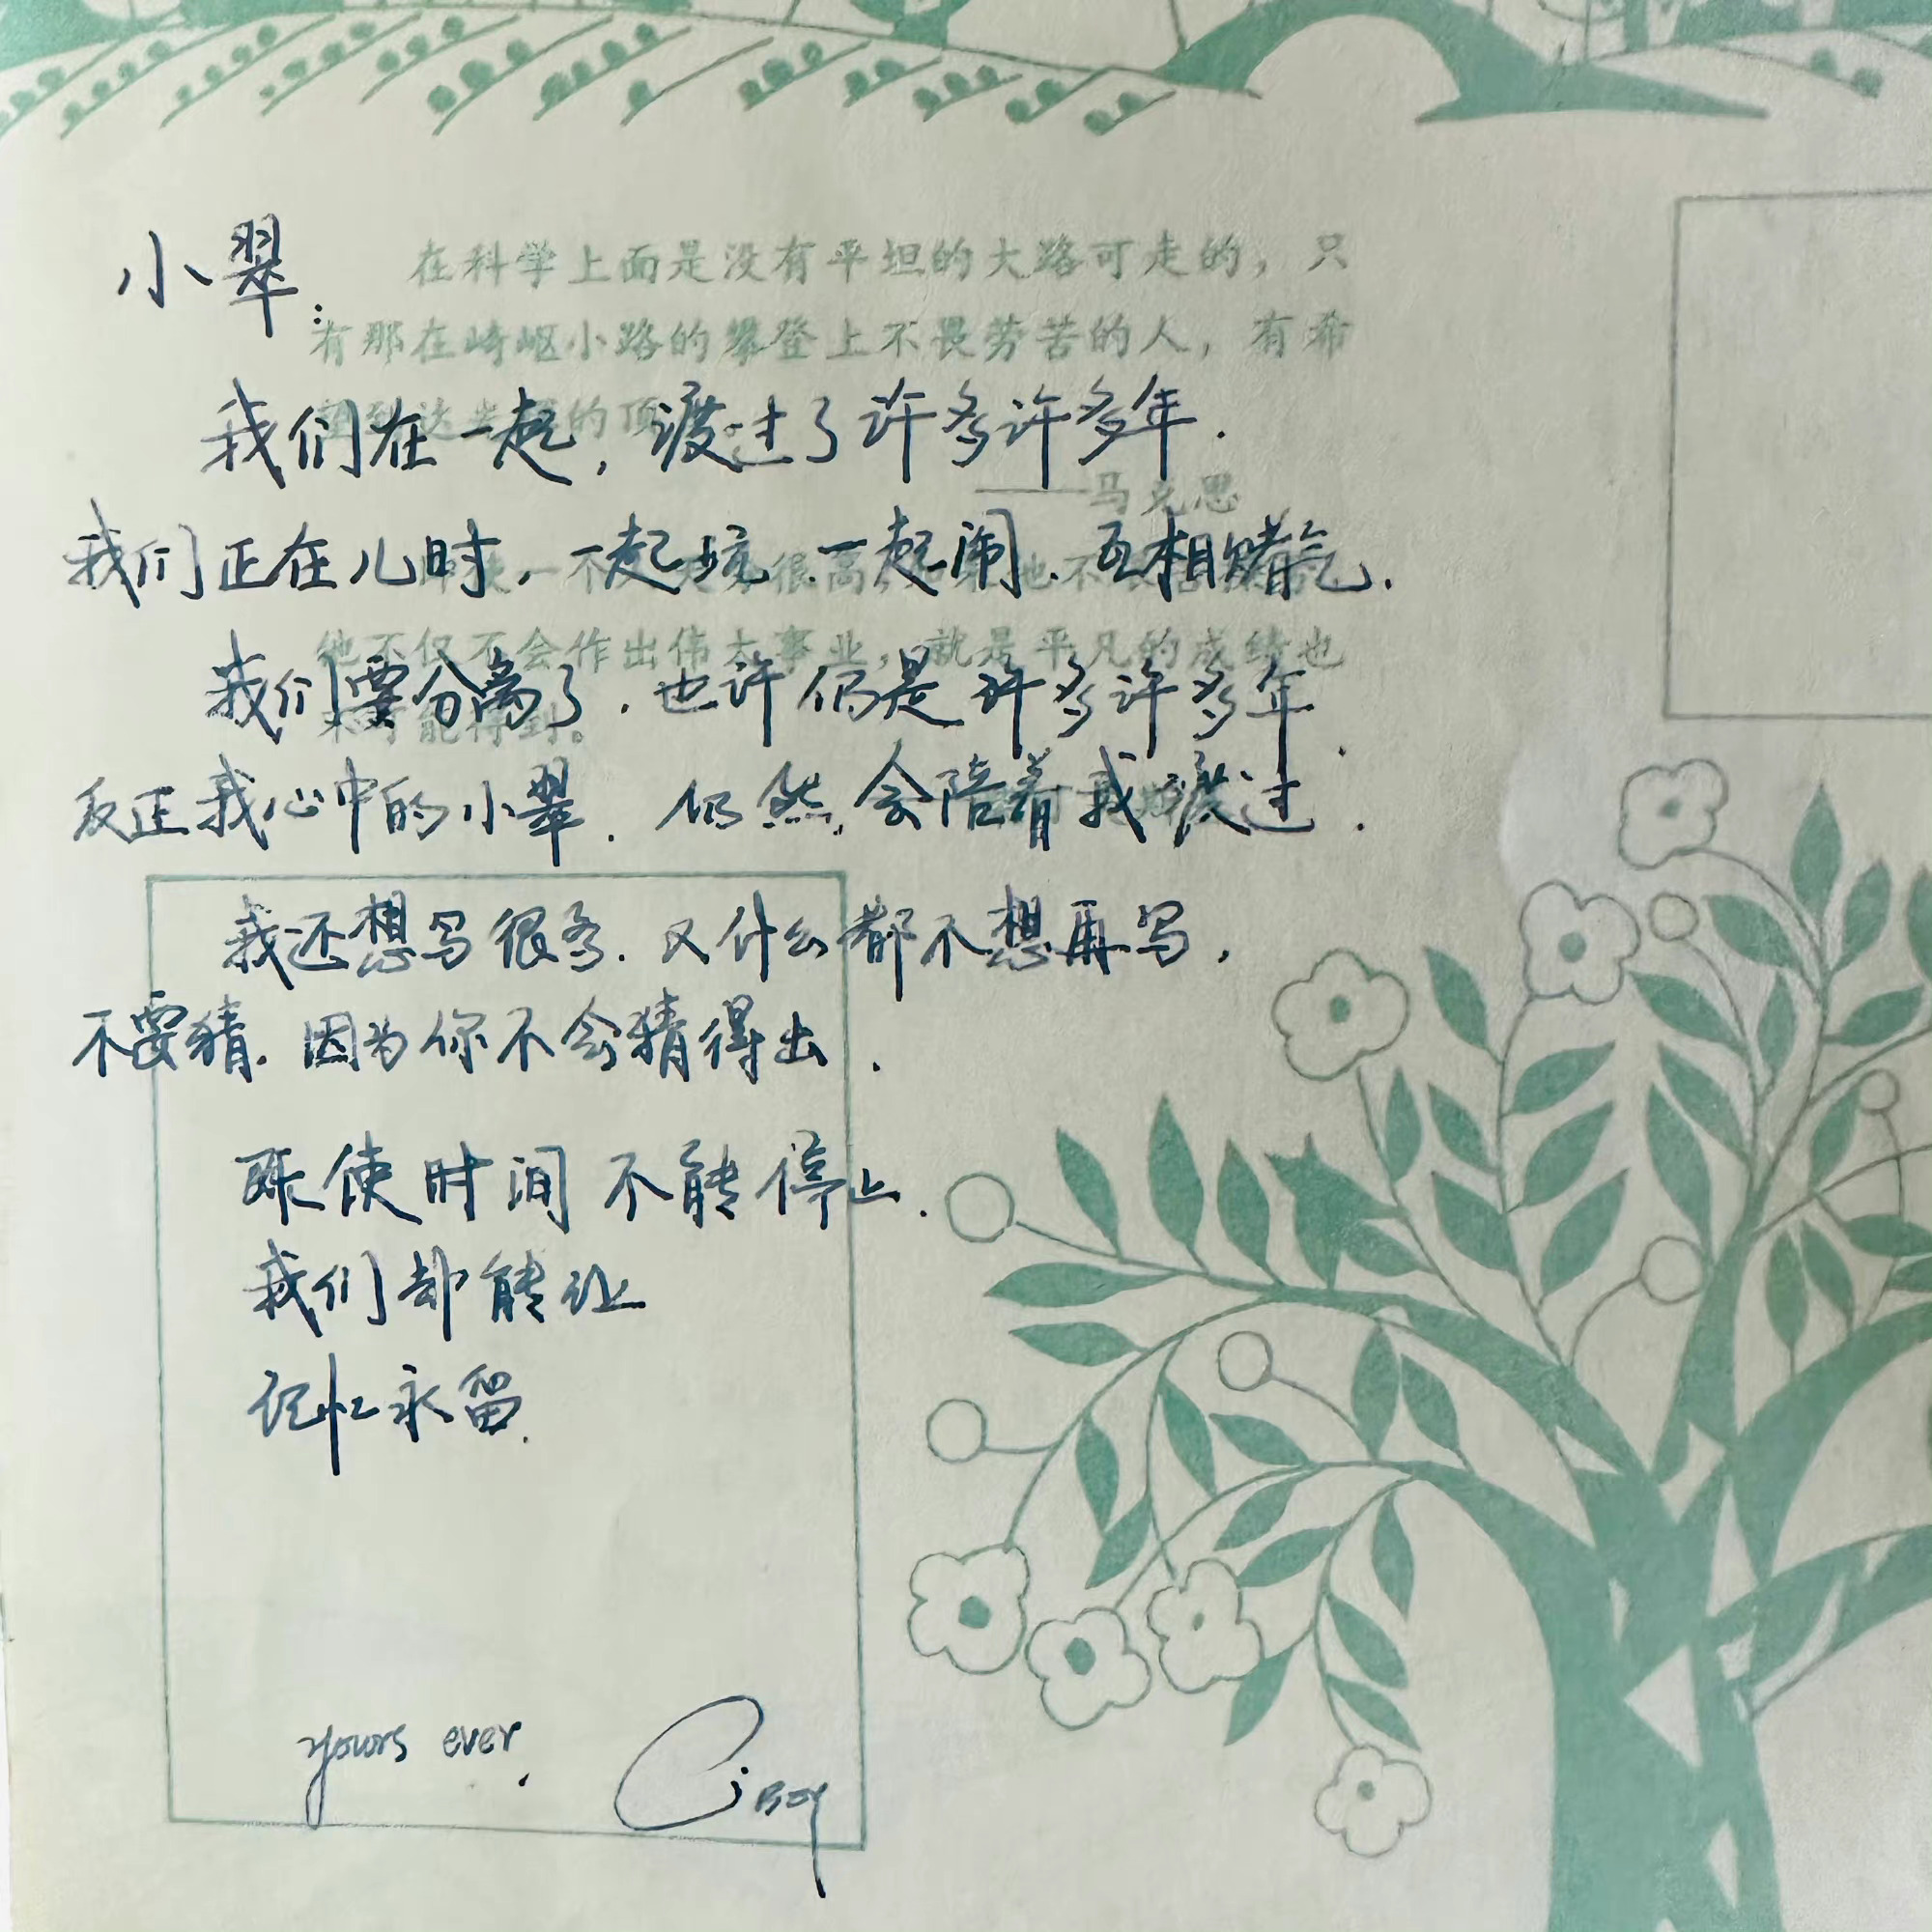 小翠:
在科学上面是没有平坦的大路可走的，只
有那在崎岖小路的攀登上不畏劳苦的人，有希
的顶
我们在一起，渡过了许多许多年.
——马克思
我们正在儿时，一起玩.一起闹.互相赌气.
他不仅不会作出伟大事业，就是平凡的成绩也
不可能得到。
我们要分离了.也许仍是许多许多年.
反正我心中的小翠.仍然会陪着我渡过.
我还想写很多.又什么都不想再写.
不要猜.因为你不会猜得出.
既使时间不能停止.
我们却能让
记忆永留.
yours ever,